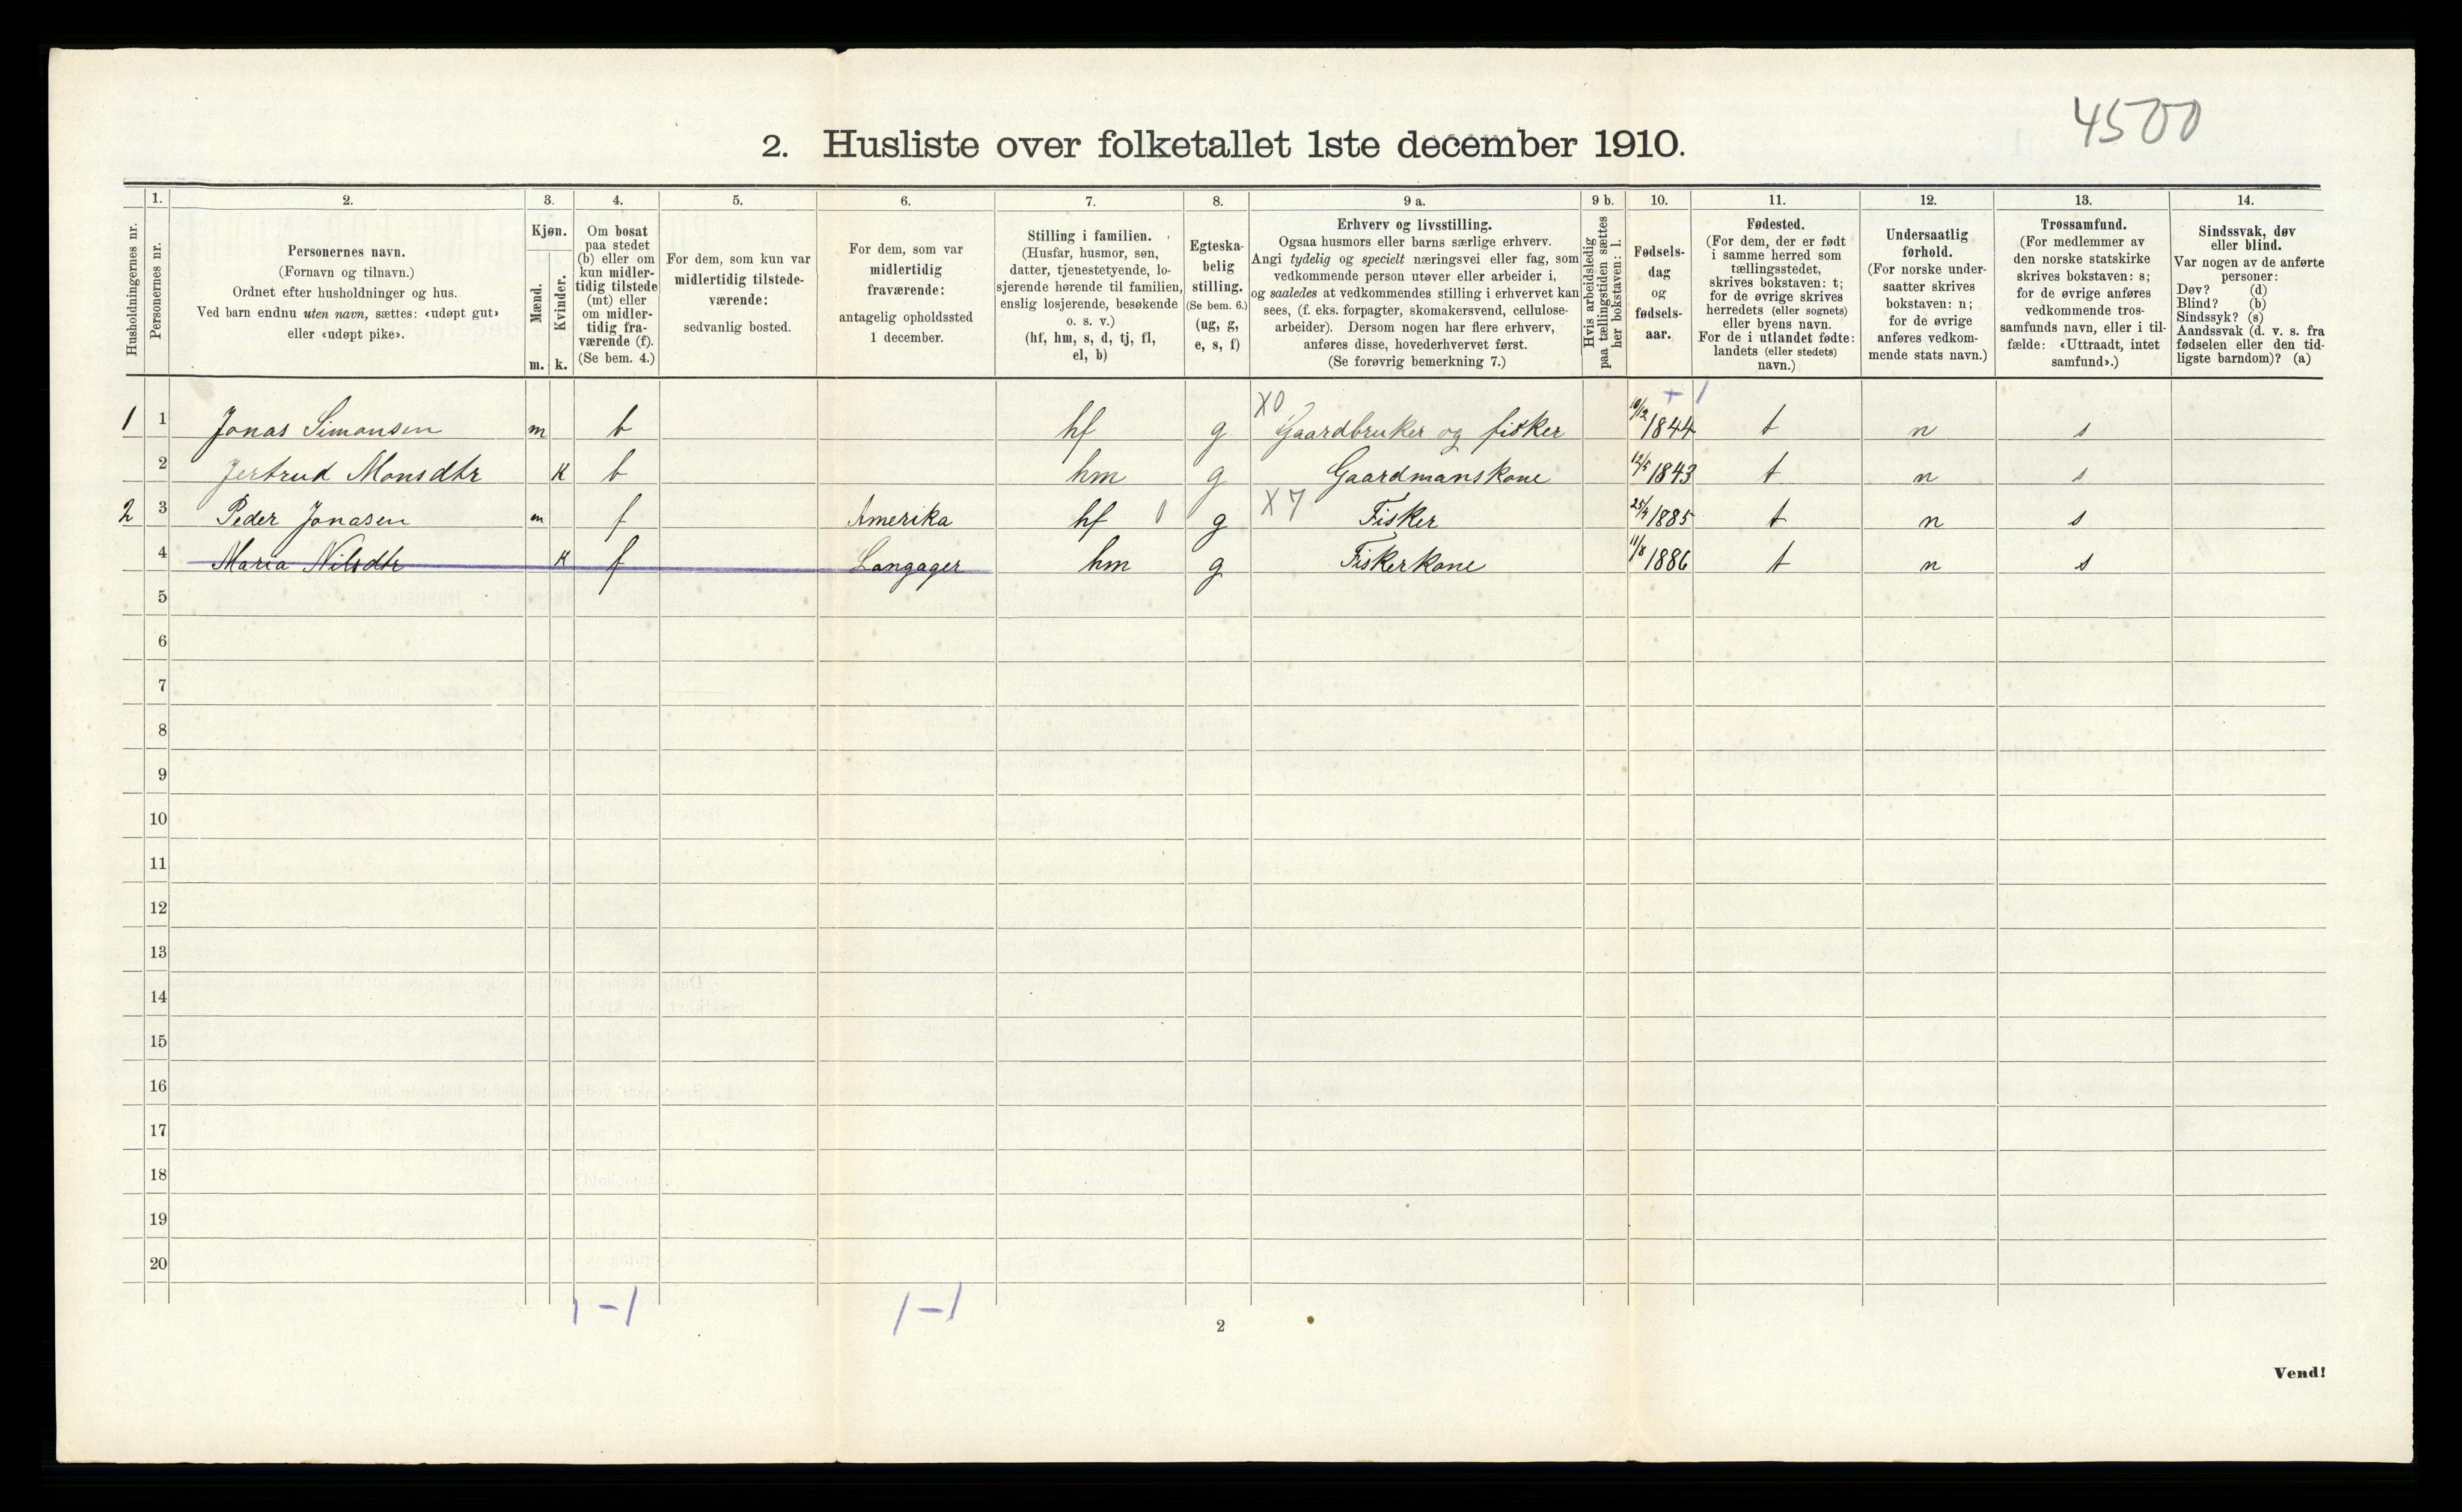 4500
2. Husliste over folketallet 1ste december 1910.
Husholdningernes nr.
1.
Personernes nr.
2.
Personernes navn.
(Fornavn og tilnavn.)
Ordnet efter husholdninger og hus.
Ved barn endnu uten navn, sættes: «udøpt gut»
eller «udøpt pike».
3.
Kjøn.
Mænd.
Kvinder.
m. k.
4.
Om bosat
paa stedet
(b) eller om
kun midler-
tidig tilstede
(mt) eller
om midler-
tidig fra-
værende (f).
(Se bem. 4.)
5.
For dem, som kun var
midlertidig tilstede-
værende:
sedvanlig bosted.
6.
For dem, som var
midlertidig
fraværende:
antagelig opholdssted
1 december.
7.
Stilling i familien.
(Husfar, husmor, søn,
datter, tjenestetyende, lo-
sjerende hørende til familien,
enslig losjerende, besøkende
o. s. v.)
(hf, hm, s, d, tj, fl,
el, b)
8.
Egteska-
belig
stilling.
(Se bem. 6.)
(ug, g,
e, s, f)
9 a.
Erhverv og livsstilling.
Ogsaa husmors eller barns særlige erhverv.
Angi tydelig og specielt næringsvei eller fag, som
vedkommende person utøver eller arbeider i,
og saaledes at vedkommendes stilling i erhvervet kan
sees, (f. eks. forpagter, skomakersvend, cellulose-
arbeider). Dersom nogen har flere erhverv,
anføres disse, hovederhvervet først.
(Se forøvrig bemerkning 7.)
9 b.
Hvis arbeidsledig
paa tællingstiden sættes
her bokstaven: l.
10.
Fødsels-
dag
og
fødsels-
aar.
11.
Fødested.
(For dem, der er født
i samme herred som
tællingsstedet,
skrives bokstaven: t;
for de øvrige skrives
herredets (eller sognets)
eller byens navn.
For de i utlandet fødte:
landets (eller stedets)
navn.)
12.
Undersaatlig
forhold.
(For norske under-
saatter skrives
bokstaven: n;
for de øvrige
anføres vedkom-
mende stats navn.)
13.
Trossamfund.
(For medlemmer av
den norske statskirke
skrives bokstaven: s;
for de øvrige anføres
vedkommende tros-
samfunds navn, eller i til-
fælde: «Uttraadt, intet
samfund».)
14.
Sindssvak, døv
eller blind.
Var nogen av de anførte
personer:
Døv? (d)
Blind? (b)
Sindssyk? (s)
Aandssvak (d. v. s. fra
fødselen eller den tid-
ligste barndom)? (a)
X0 + 1
1 1 Jonas Simonsen m b hf g Gaardbruker og fisker 10/12 1844 t n s
2 Jertrud Monsdtr k b hm g Gaardmanskone 12/5 1843 t n s
2 3 Peder Jonasen m f Amerika hf 0 g X7 Fisker 25/4 1885 t n s
4 Maria Nilsdtr k f Langager hm g Fiskerkone 11/8 1886 t n s
5
6
7
8
9
10
11
12
13
14
15
16
17
18
19
20
1 - 1 1 - 1
2
Vend!